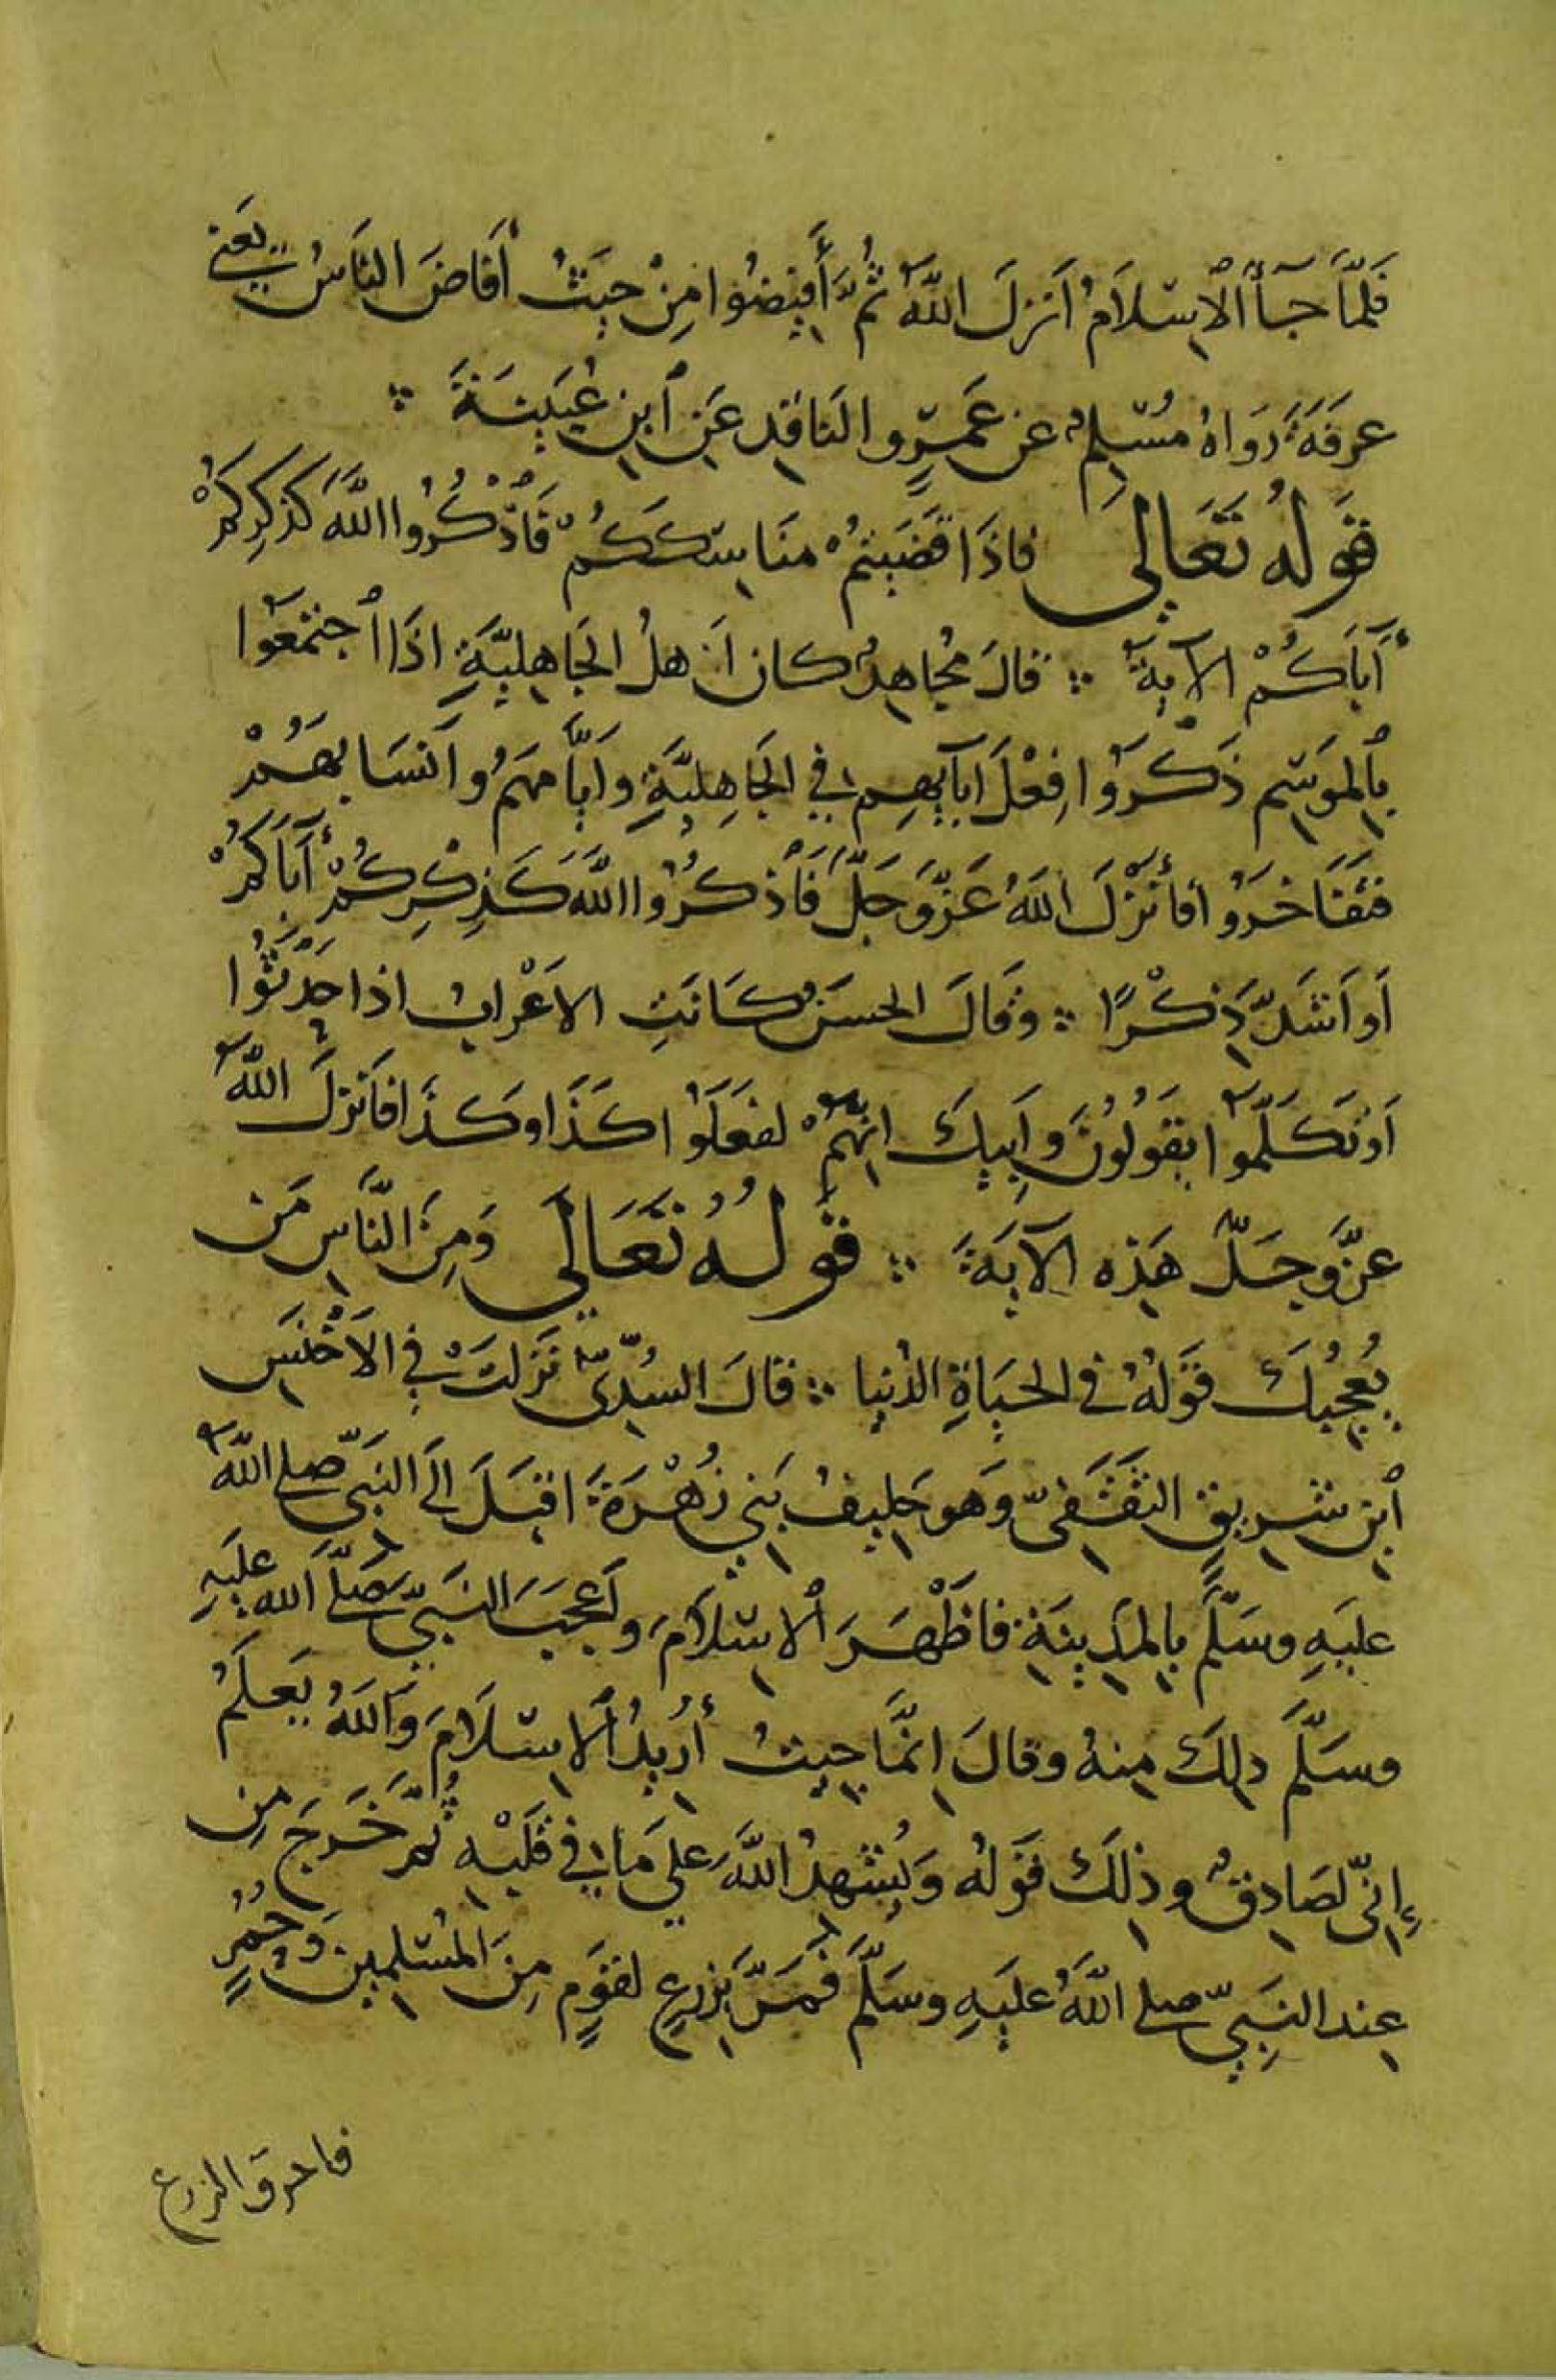 فَلَمَّا جَآءَ الْاِسْلَامُ اَنْزَلَ اللّٰهُ ثُمَّ أَفِيضُوا مِنْ حَيْثُ أَفَاضَ النَّاسُ يَعْنِي
عَرَفَةَ رَوَاهُ مُسْلِمٌ عن عَمْرٍو النَاقِدِ عَنِ ٱبنِ عُيَيْنَةَ ؞
قَوْلُهُ تَعَالَى فاذَا قَضَيْتُمْ مَنَاسِكَكُمْ فَاذْكُرُوا اللّٰهَ كَذِكْرِكُمْ
آبَاكُمْ الآيَةَ ؞ قالَ مُجَاهِدٌ كان اَهلُ الجَاهِلِيَّةِ اذَا ٱجْتَمَعُوا
بِٱلمَوْسِمِ ذَكَرُوا فِعْلَ اَبآيِهِم فِي الجَاهِلِيَّةِ وَايَّامَهُم وَاَنْسَابَهُمْ
فتَفَاخَرُوا فأَنْزَلَ اللهُ عَزَّ وَجَلَّ فَاذْكُرُوا اللّٰهَ كَذِكْرِكُمْ آبَاكُمْ
اَو اَشَدَّ ذِكْرًا ؞ وقَالَ الحسَنُ كَانَتِ الاَعْرابُ اذا حَدَّثُوا
اَو تَكَلَّمُوا يَقُولُونَ وَاَبِيكَ اِنَّهُمْ لفَعَلُوا كَذَا وَكَذَا فَاَنْزَلَ اللّٰهُ
عَزَّ وجَلَّ هَذِه الآيَةَ ؞ قَوْلُهُ تَعَالَى وَمِنَ النَّاسِ مَن
يُعْجِبُكَ قَوْلُهُ في الحَيَاةِ الدُنيا ؞ قالَ السُدِّيُّ نَزَلَتْ فِي الاَخْنَسِ
ٱبنِ شَرِيقٍ الثَقَفِيِّ وَهو حَلِيفُ بَنِي زُهْرَةَ اقبَلَ الَى النَبِيِّ صلى اللّٰهُ
عليَهِ وسَلَّمَ بِالمَدِينَةِ فاَظْهَرَ الْاِسْلَامَ واَعجَبَ النَبِيَّ صَلَّى الله عليَهِ
وسَلَّمَ ذلِكَ مِنهُ وقالَ اِنَّمَا جِيتُ أُرِيدُ الْاِسْلَامَ وَاللّٰهُ يَعلَمُ
إِنِّي لصَادِقٌ وذٰلِكَ قَوْلُه وَيُشْهِدُ اللّٰهَ على مَا فِي قَلْبِه ثُمَّ خَرَجَ مِن
عِندِ النَبِيِّ صلى اللّٰهُ عليَهِ وسَلَّمَ فَمَرَّ بزَرعٍ لقَوْمٍ مِنَ المُسْلِمِينَ وَحُمُرٍ
فاحرق الزرع